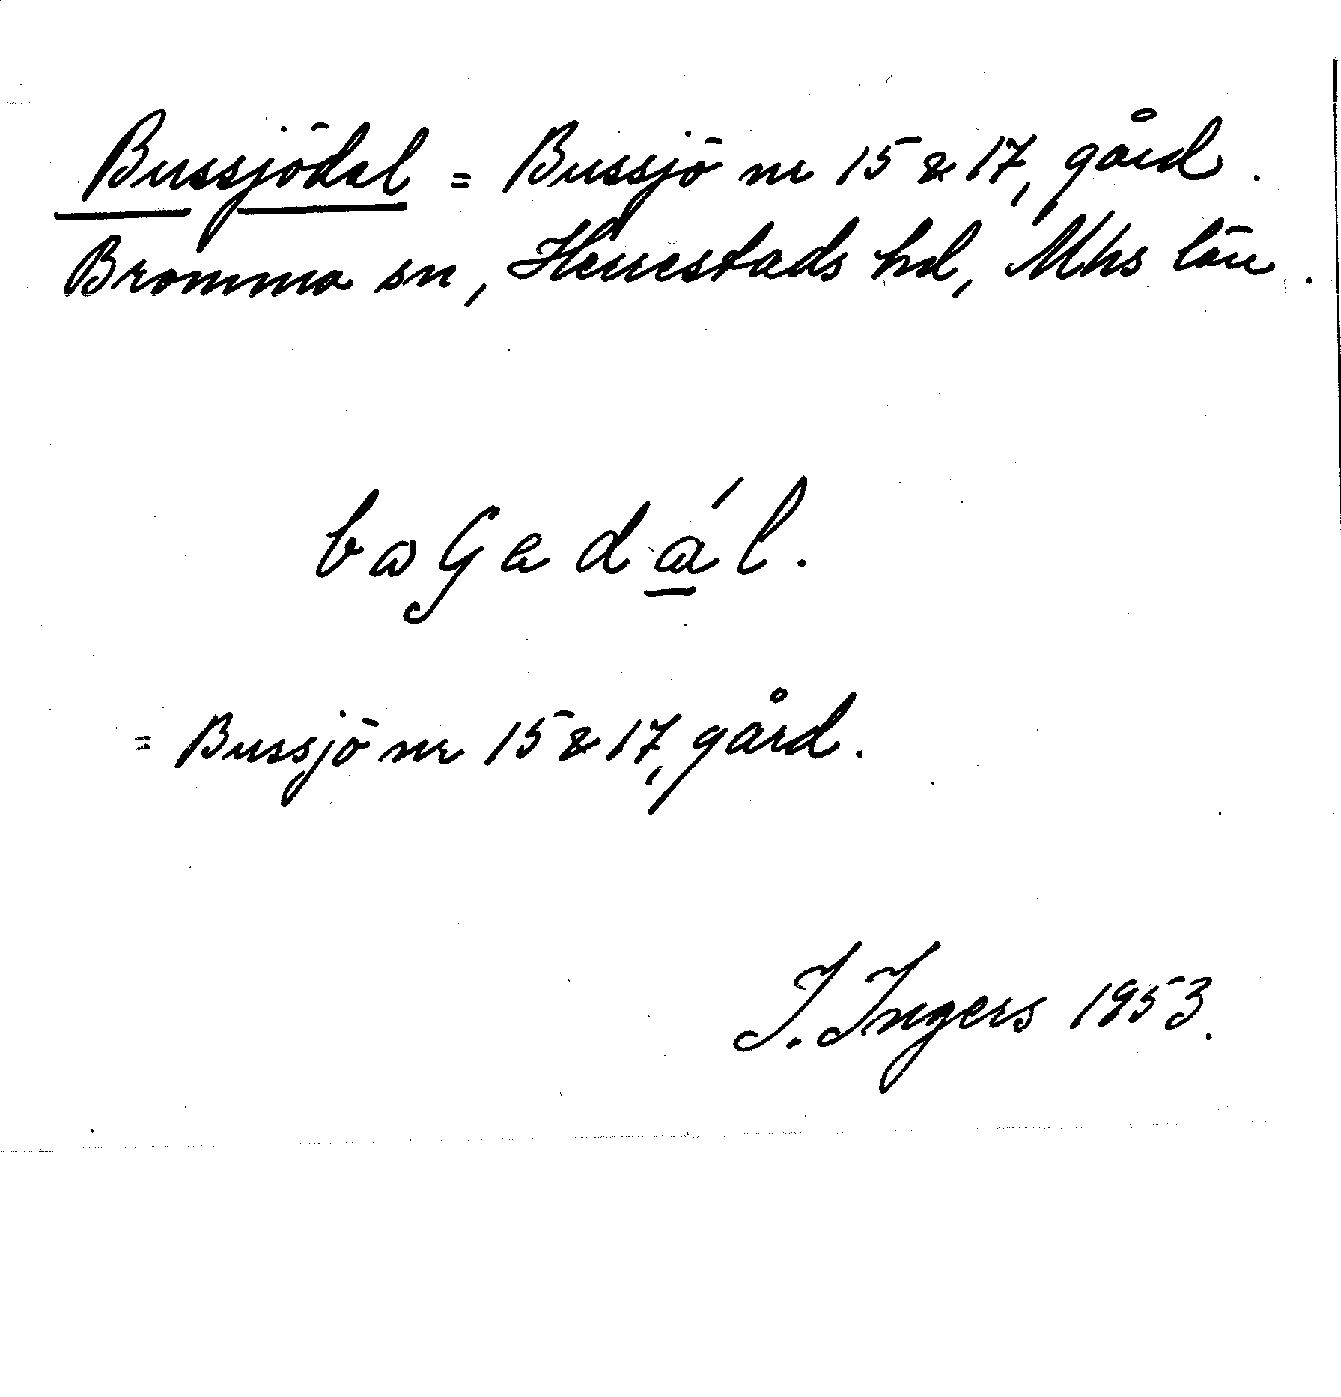 Bussjödal = Bussjö nr 15 & 17, gård.
Bromma sn, Herrestads hd, Mhs län.
baGadál.
= Bussjö nr 15 & 17, gård.
I. Ingers 1953.